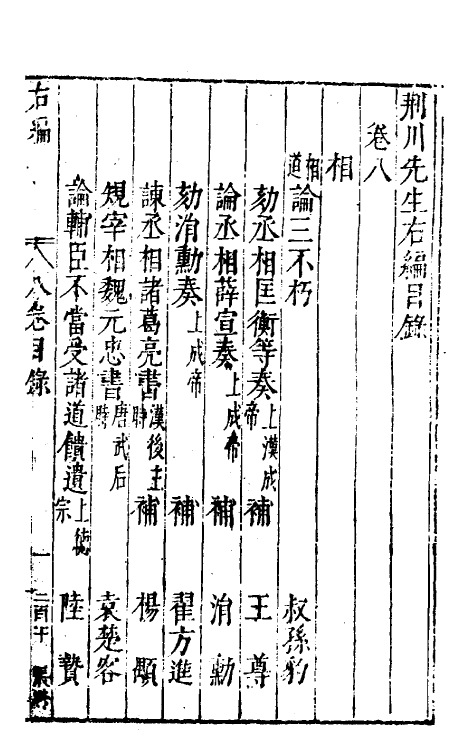 荆川先生右編目錄
卷八
相
相道 論三不朽 叔孫豹
劾丞相匡衡等奏 上漢成帝 補 王尊
論丞相薛宣奏 上成帝 補 涓勳
劾涓勳奏 上成帝 補 翟方進
諫丞相諸葛亮書 漢後主時 補 楊顒
規宰相魏元忠書 唐武后時 袁楚客
論輔臣不當受諸道饋遺 上德宗 陸贄
右編 八卷目錄 一